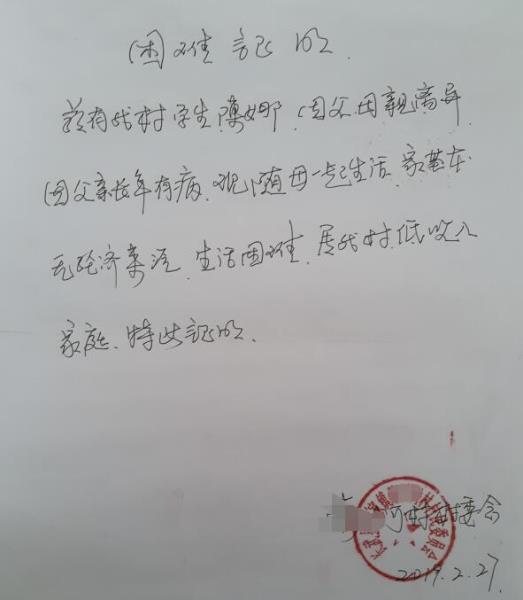 困难证明
兹有我村学生陳娜,因父母親离异
因父亲长年有病、现随母一起生活、家基本
无经济来源、生活困难、属我村低收入
家庭、特此证明、
河村村委会
2019.2.27